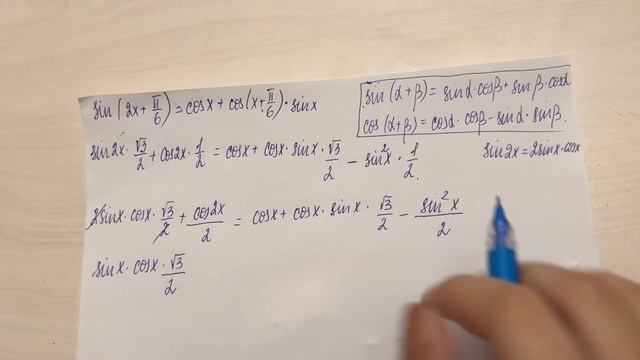 sin(2x + π/6) = cosx + cos(x + π/6) · sinx
sin(α+β) = sinα · cosβ + sinβ · cosα
cos(α+β) = cosα · cosβ - sinα · sinβ.
sin2x · √3/2 + cos2x · 1/2 = cosx + cosx · sinx · √3/2 - sin²x · 1/2.
sin2x = 2sinx · cosx
2sinx · cosx · √3/2 + cos2x/2 = cosx + cosx · sinx · √3/2 - sin²x/2
sinx · cosx · √3/2